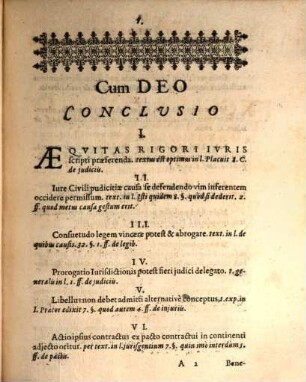 Cum DEO
CONCLVSIO
I.
ÆQVITAS RIGORI IVRIS
scripti præferenda. textus est optimus in l. Placuit 8. C.
de judiciis.
II.
Iure Civili pudicitiæ causa se defendendo vim inferentem
occidere permissum. text. in l. Isti quidem 8. §. quod si dederit. 2.
ff. quod metus causa gestum erit.
III.
Consuetudo legem vincere potest & abrogare. text. in l. de
quibus causis. 32. §. 1. ff. de legib.
IV.
Prorogatio Iurisdictionis potest fieri judici delegato. l.
in l. 1. ff. de judiciis.
V.
Libellus non debet admitti alternativè conceptus, t. exp. in
l. Prætor edixit 7. §. quod autem. 4. ff. de injuriis.
VI.
Actio ipsius contractus ex pacto contractui in continenti
adjecto oritur. per text. in l. jurisgentium 7. §. quin imò interdum 5.
ff. de pactis.
A 2 Bene-